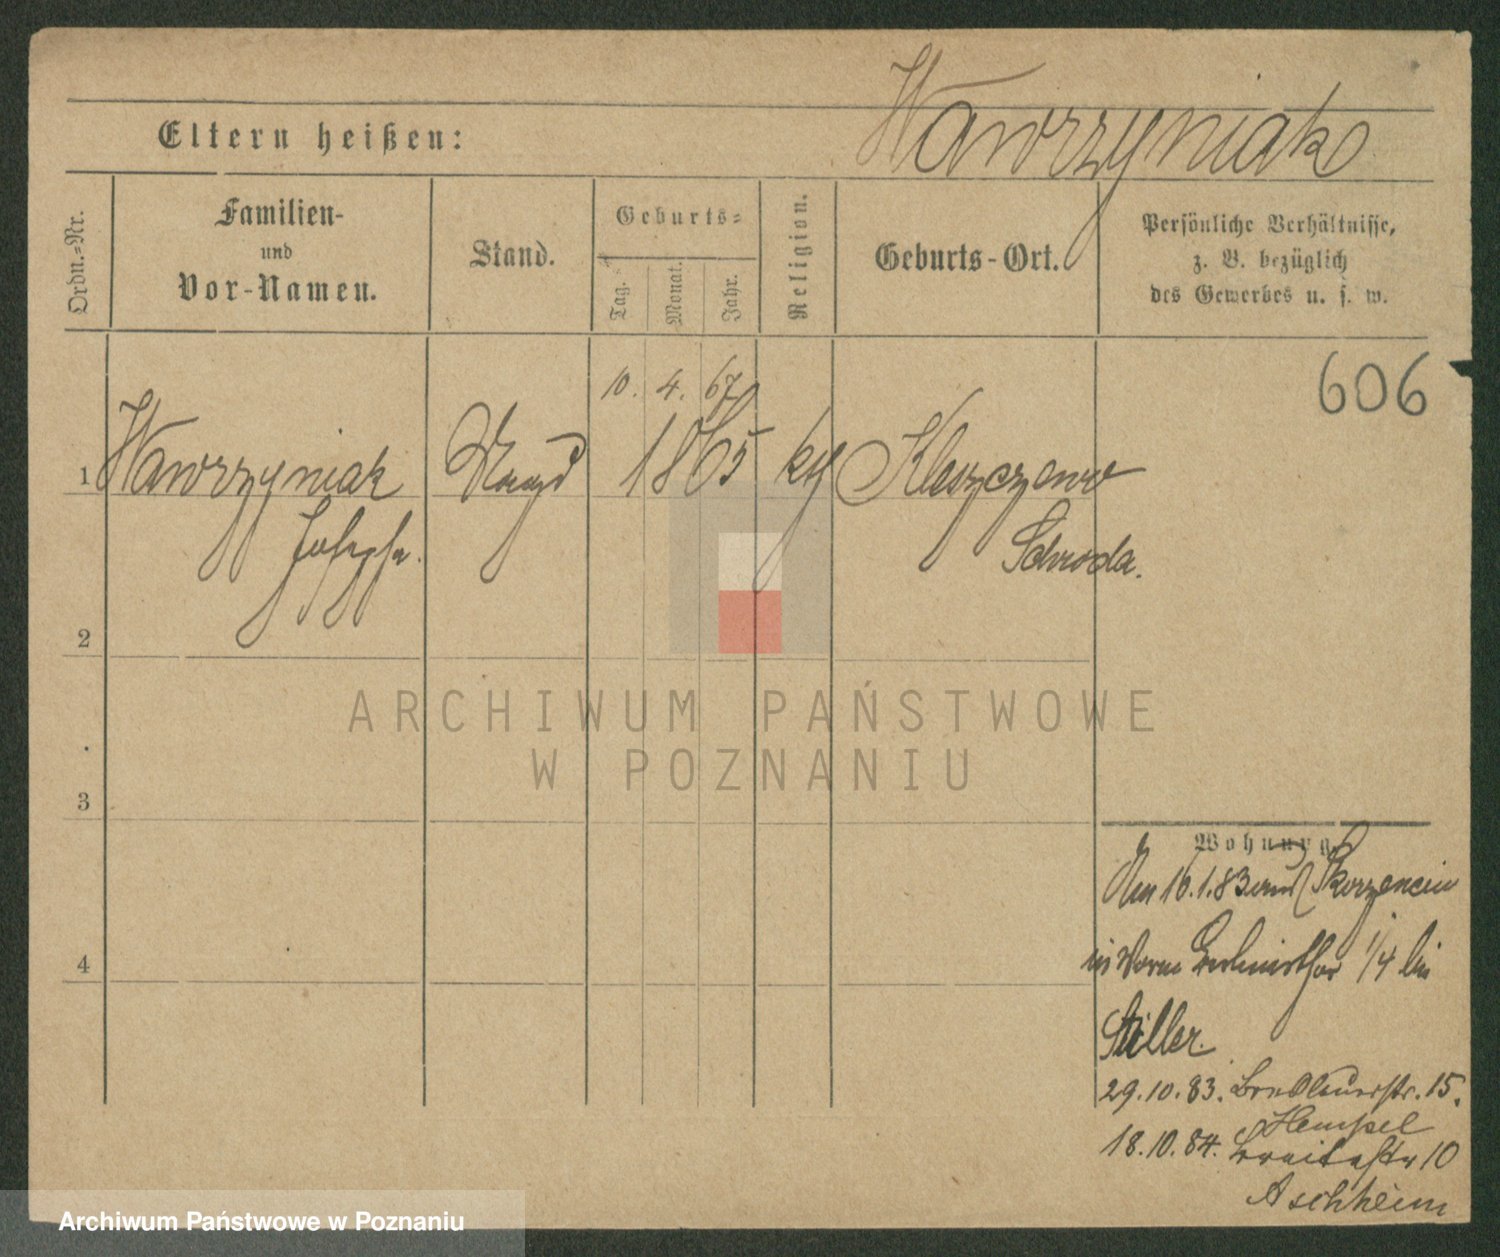 Wawrzyniak
Eltern heißen:
Ordn.=Nr.
Familien-
und
Vor-Namen.
Stand.
Geburts=
Tag.
Monat.
Jahr.
Religion.
Geburts-Ort.
Persönliche Verhältnisse,
z. B. bezüglich
des Gewerbes u. s. w.
606
10. 4. 67
1 Wawrzyniak Magd 1865 Kleszczewo
Josepha. Schroda.
2
3
4
ARCHIWUM PAŃSTWOWE
W POZNANIU
Wohnung.
16.1.83 Skorzencin
1/4 bei
Stiller.
29.10.83. Breslauerstr. 15.
Hempel
18.10.84. Breitestr 10
Aschheim
Archiwum Państwowe w Poznaniu